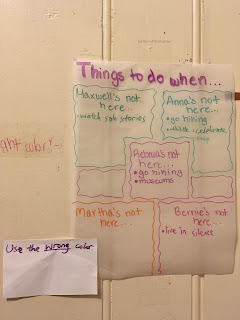 Things to do when...
Maxwell's not
here...
•watch sob stories
Anna's not
here...
•go hiking
Rebecca's not
here...
•go hiking
•museums
Martha's not
here...
Bernie's not
here...
•live in silence
Use the wrong color